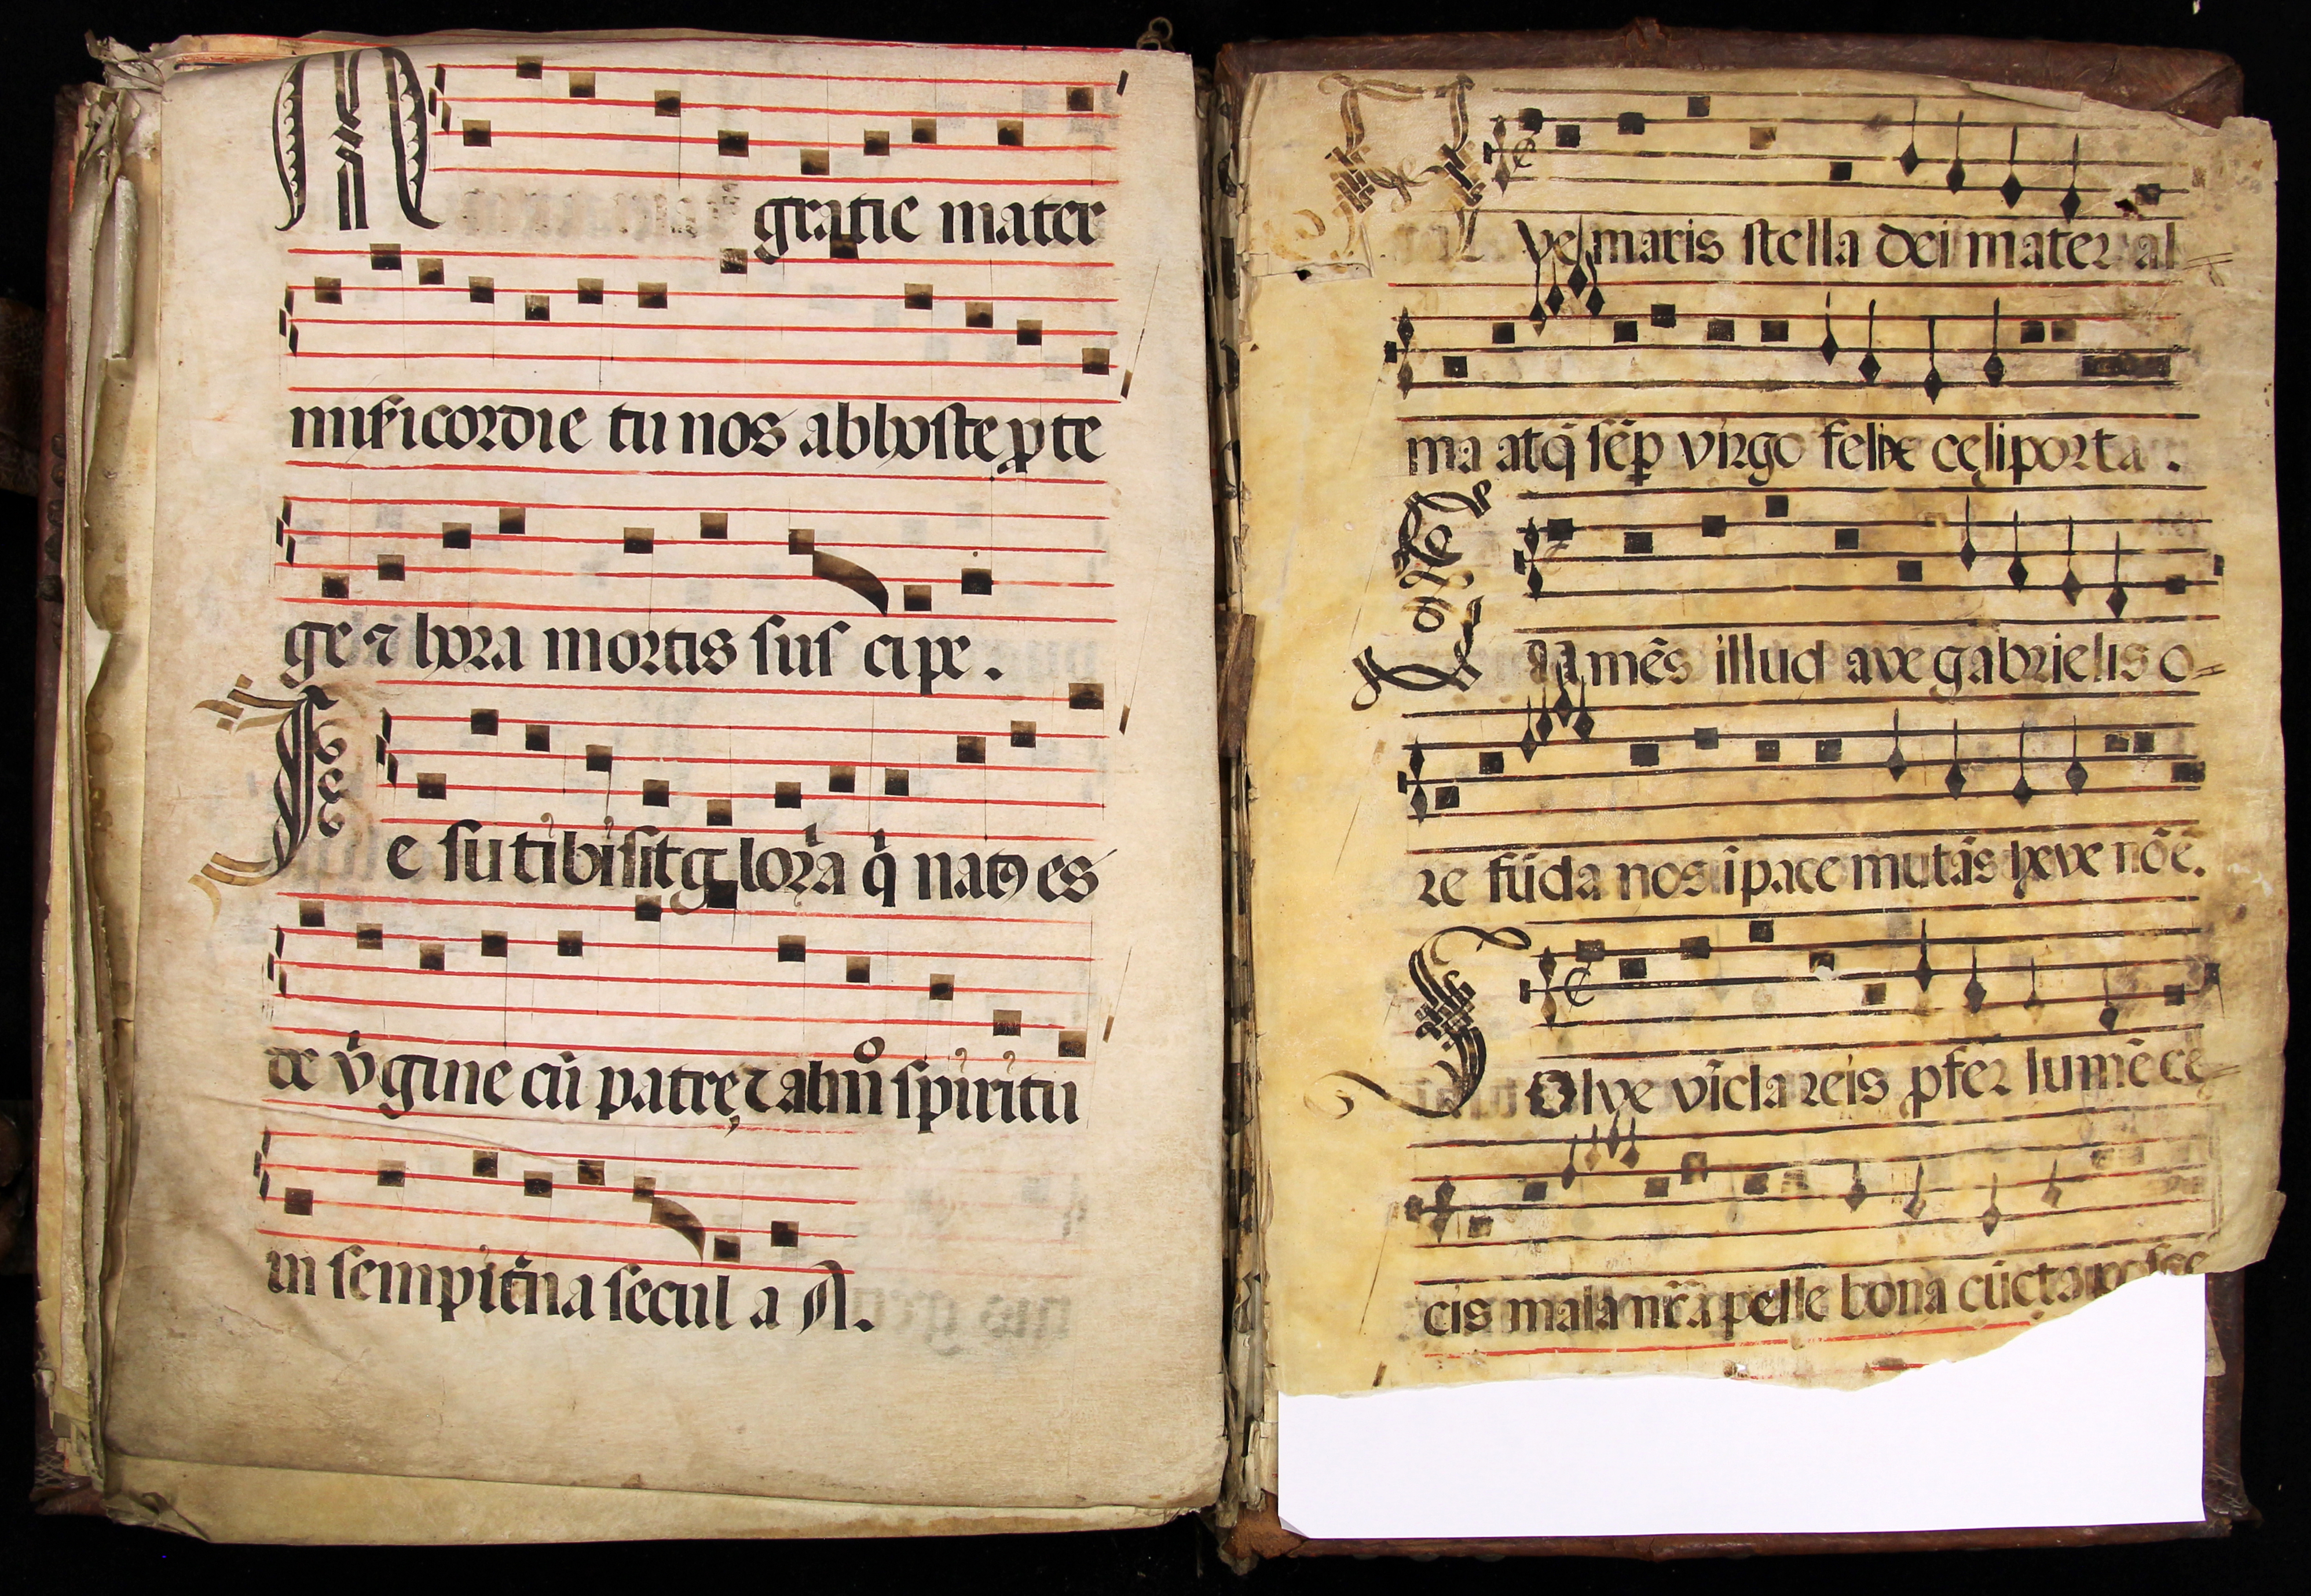 M gratie mater
misericordie tu nos ab hoste p̱ te
ge ⁊ hora mortis sus cipe.
Ie su tibi sit g lor̃a q̇ natꝰ es
de v̇gine cũ patre, ⁊ almͦ spiritu
in sempit̃na secul a A.
A ve maris stella dei mater al=
ma atq̃ sẽp virgo felix cęli porta.
Sumẽs illud ave gabrielis o=
re fũda nos ĩ pace mutãs heve nõẽ.
Solve vĩcla reis ꝓfer lumẽ cę
cis mala nr̃a pelle bona cũcta posce